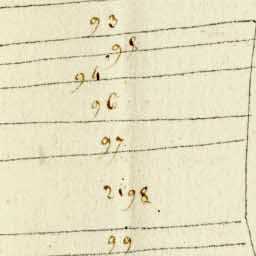 93
95
94
96
97
2198
99